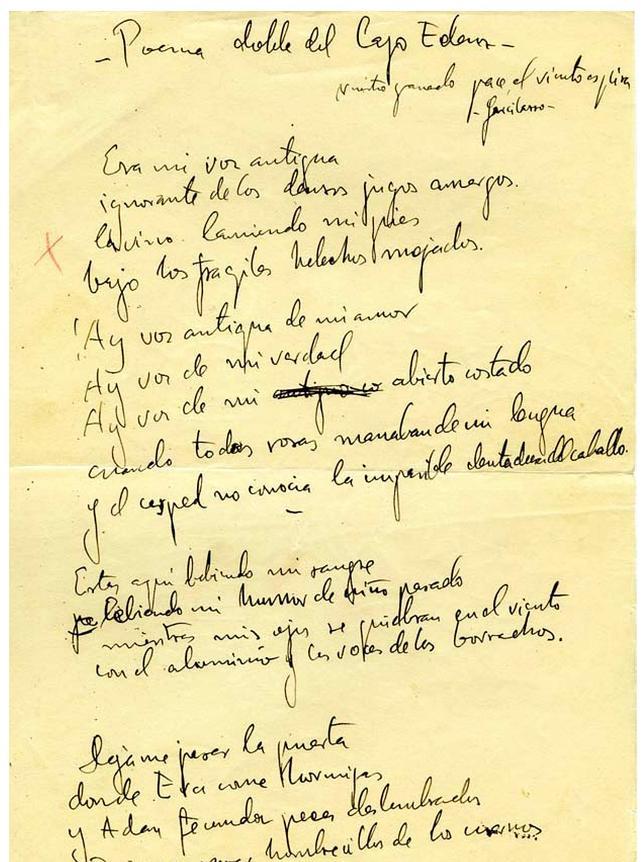 - Poema doble del Lago Edem -
nuestro ganado pace, el viento espira
- Garcilasso -
Era mi voz antigua
ignorante de los densos jugos amargos.
la que vino lamiendo mis pies
bajo los fragiles helechos mojados.
¡Ay voz antigua de mi amor
Ay voz de mi verdad
Ay voz de mi abierto costado
cuando todas rosas manaban de mi lengua
y el cesped no conocia la impasible dentadura del caballo.
Estas aqui bebiendo mi sangre
bebiendo mi humor de niño pasado
mientras mis ojos se quiebran en el viento
con el aluminio y las voces de los borrachos.
Dejame pasar la puerta
donde Eva come hormigas
y Adan fecunda peces deslumbrados
hombrecillos de los cuernos